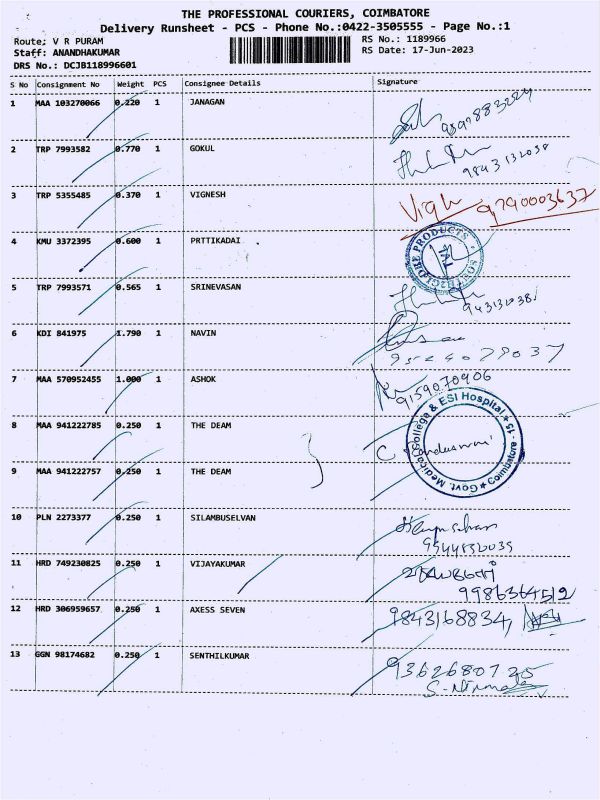 THE PROFESSIONAL COURIERS, COIMBATORE
Delivery Runsheet - PCS - Phone No.:0422-3505555 - Page No.:1
Route; V R PURAM
RS No.: 1189966
Staff: ANANDHAKUMAR
RS Date: 17-Jun-2023
DRS No.: DCJB118996601
S No Consignment No Weight PCS Consignee Details Signature
1 MAA 103270066 0.220 1 JANAGAN
2 TRP 7993582 0.770 1 GOKUL
3 TRP 5355485 0.370 1 VIGNESH 9790003637
4 KMU 3372395 0.600 1 PRTTIKADAI
PRODUCTS
5 TRP 7993571 0.565 1 SRINEVASAN
6 KDI 841975 1.790 1 NAVIN 9524079037
7 MAA 570952455 1.000 1 ASHOK 9159070906
8 MAA 941222785 0.250 1 THE DEAM
9 MAA 941222757 0.250 1 THE DEAM
Govt. Medical College & ESI Hospital * Coimbatore - 15 *
10 PLN 2273377 0.250 1 SILAMBUSELVAN
11 HRD 749230825 0.250 1 VIJAYAKUMAR
9986364512
12 HRD 306959657 0.250 1 AXESS SEVEN 9843168834,
13 GGN 98174682 0.250 1 SENTHILKUMAR 9362680725
S. Nirmala